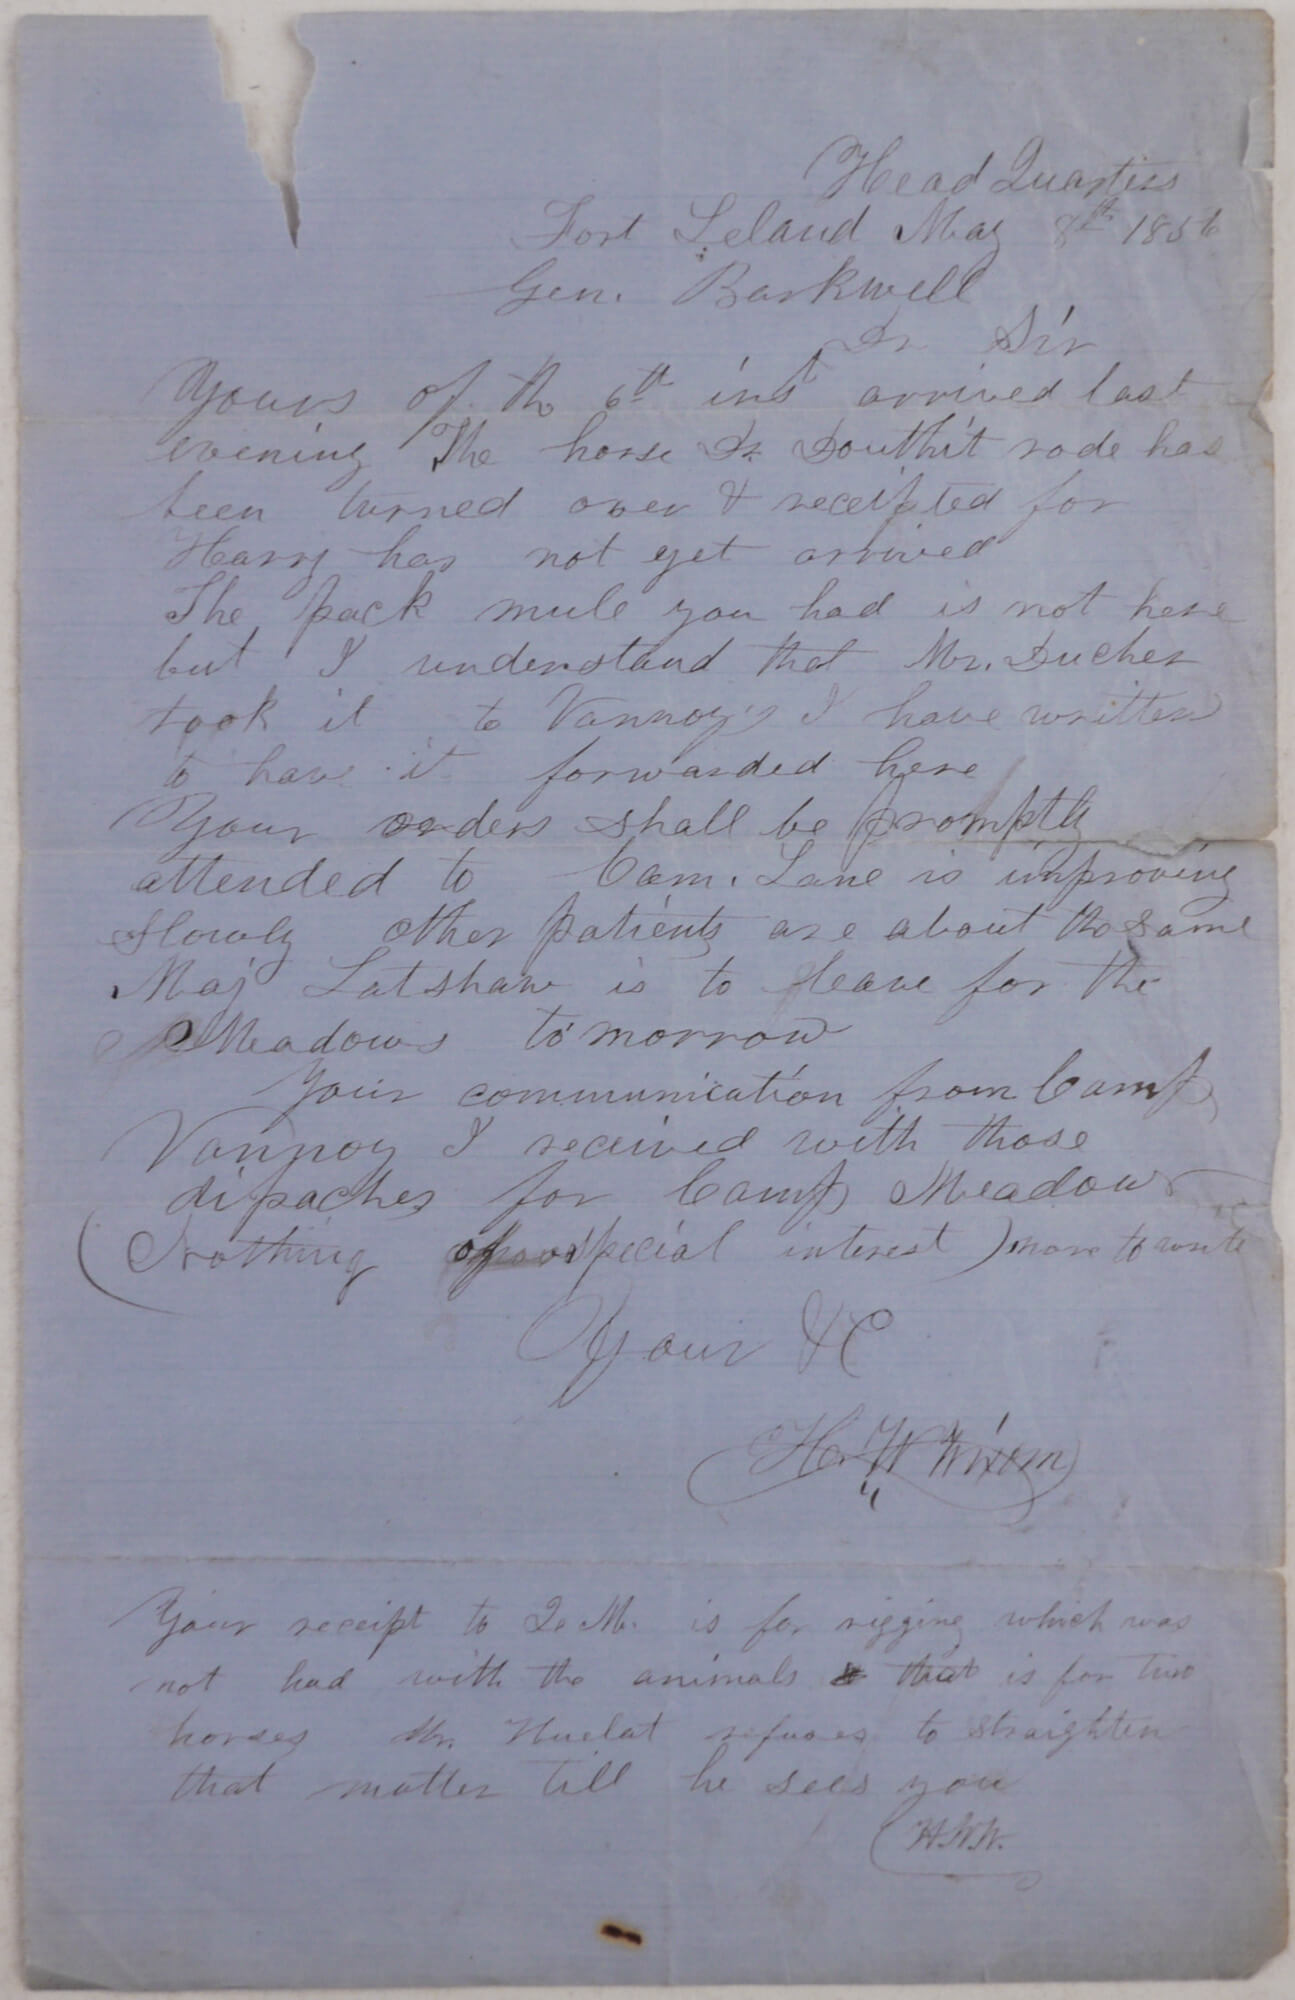 Head Quarters
Fort Leland May 8th 1856
Gen. Barkwell
Dr Sir
Yours of the 6th inst arrived last
evening The horse Dr Douthit rode has
been turned over & receipted for
Harry has not yet arrived
The pack mule you had is not here
but I understand that Mr. Ducher
took it to Vannoy's I have written
to have it forwarded here
Your orders shall be promptly
attended to Cam. Lane is improving
slowly other patients are about the same
Maj Latshaw is to leave for the
Meadows tomorrow
Your communication from Camp
Vannoy I received with those
dipaches for Camp Meadows
(Nothing of special interest) more to write
Your &C
H. W Wixom
Your receipt to Q. M. is for rigging which was
not had with the animals & that is for two
horses Mr. Huelat refuses to straighten
that matter till he sees you
H.W.W.